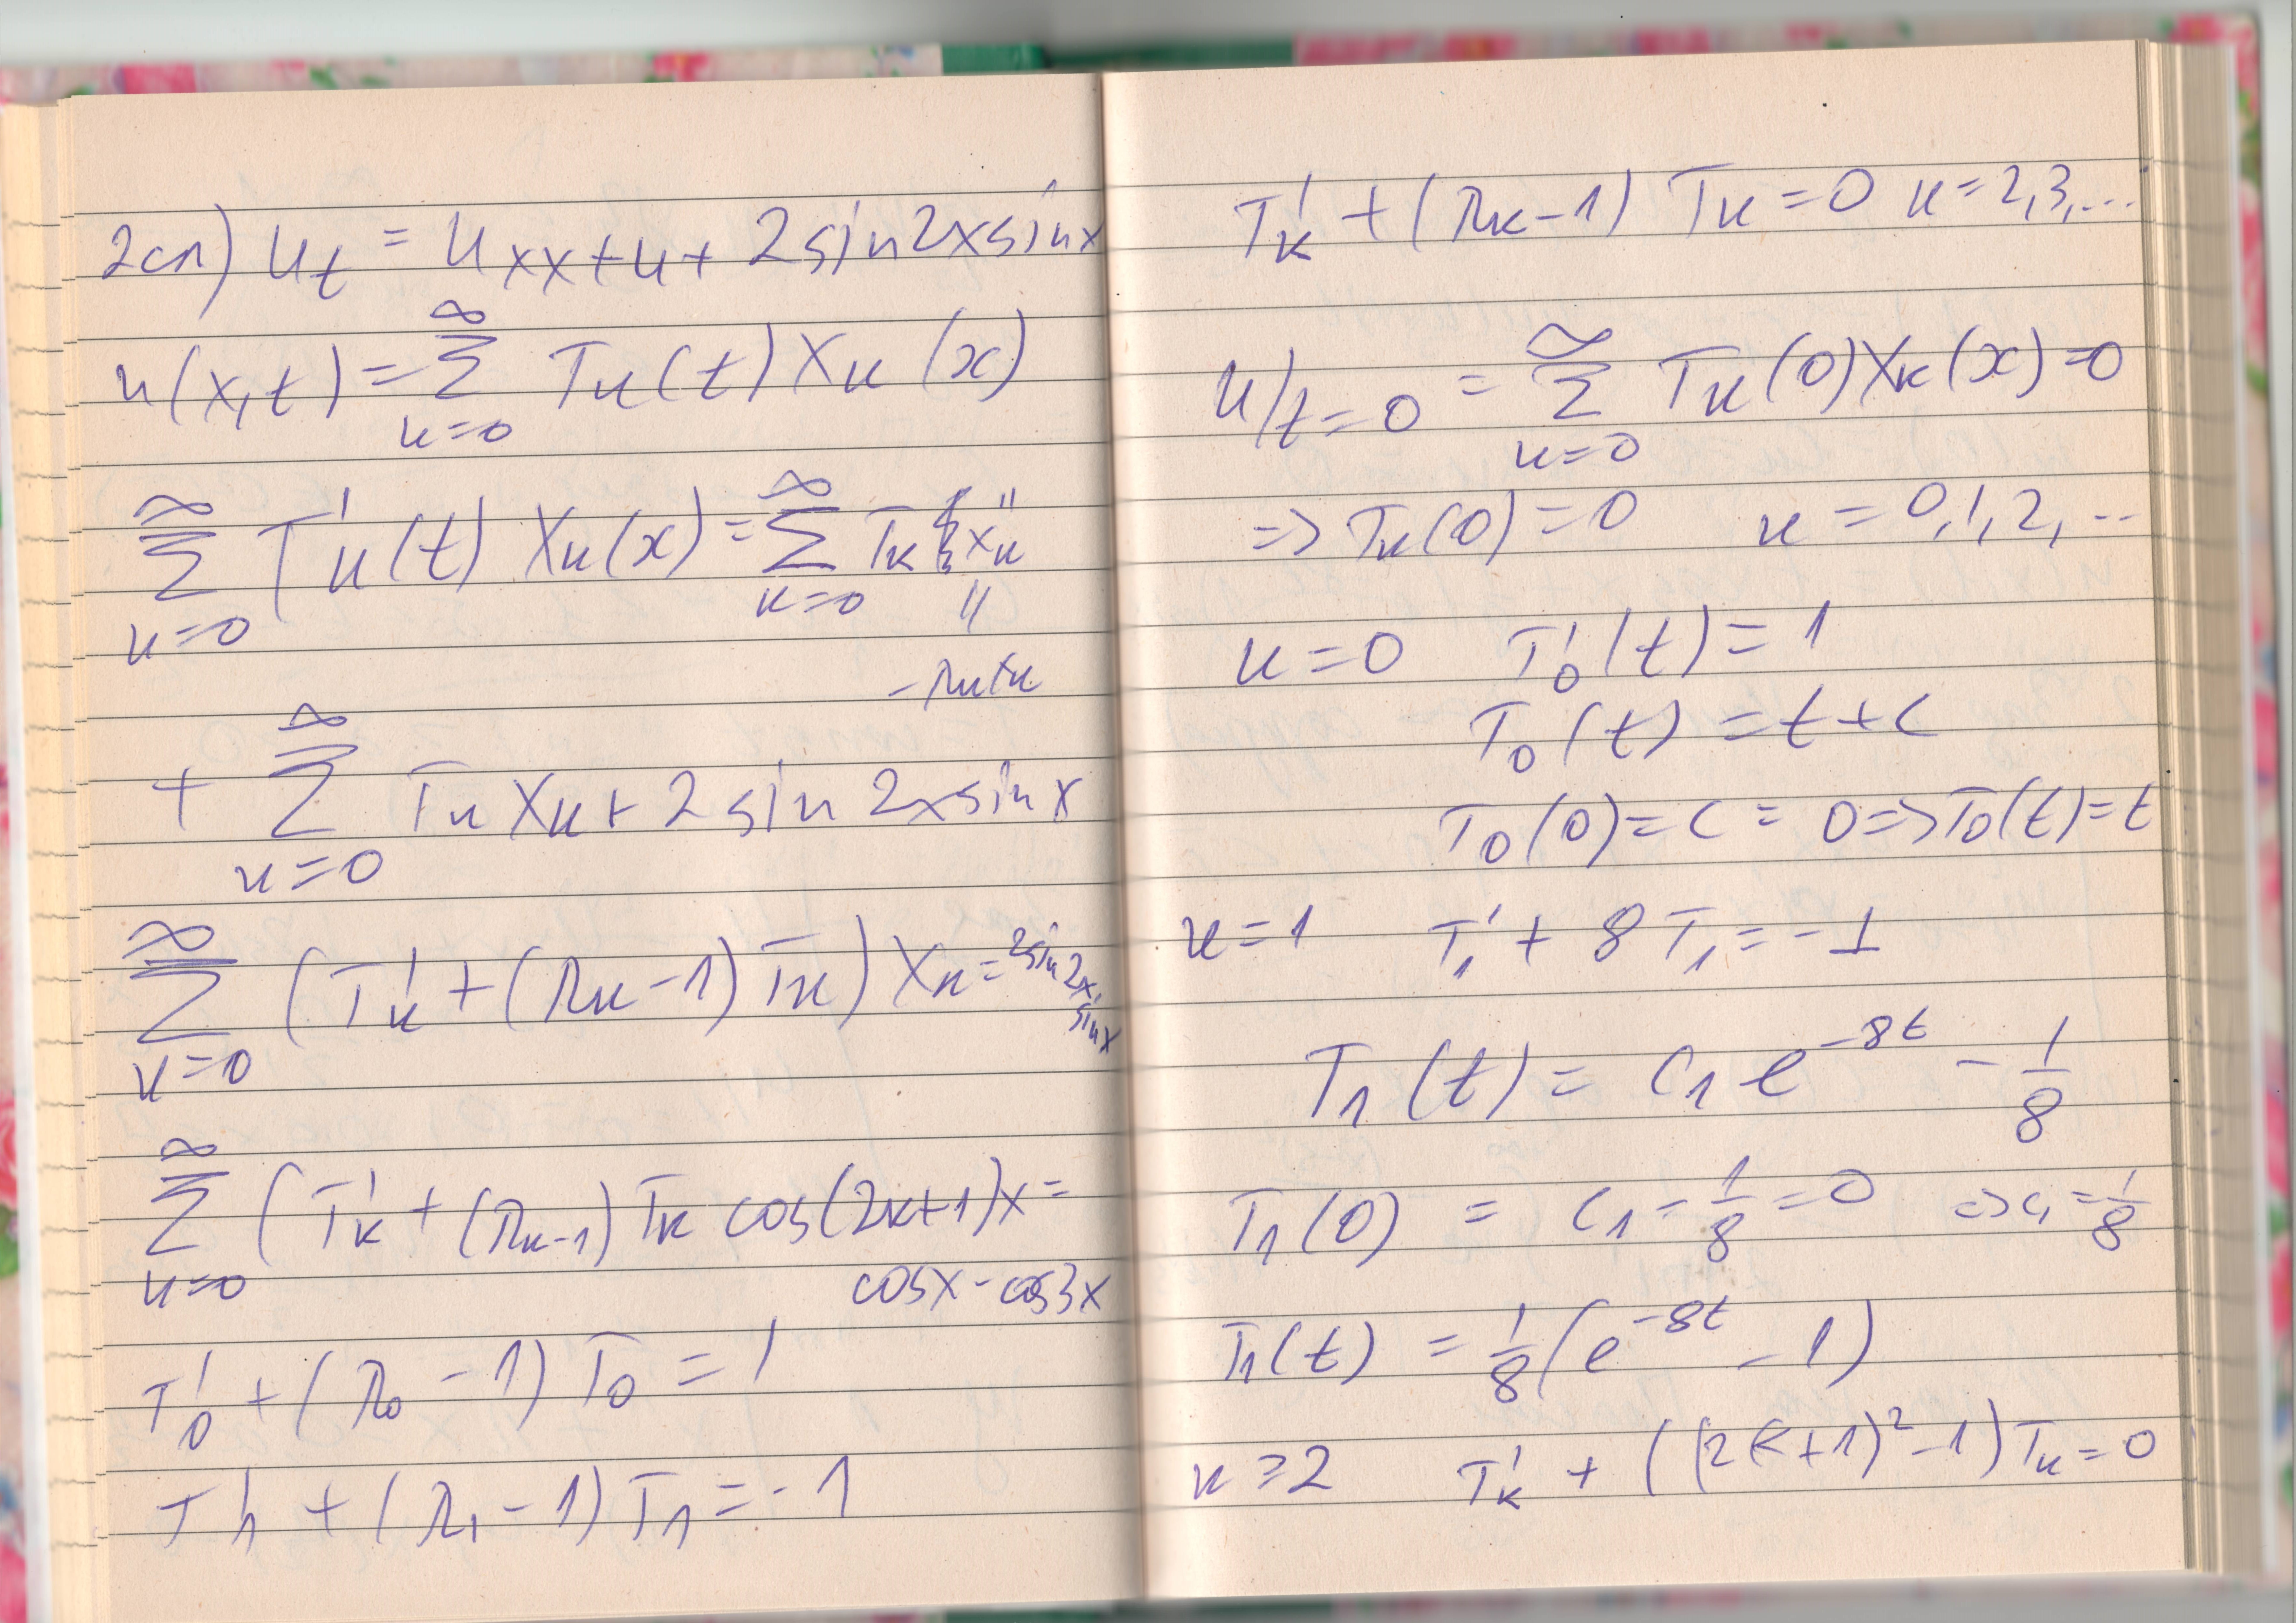 2сп) u_t = u_xx + u + 2 sin 2x sin x
u(x,t) = ∑_{k=0}^∞ T_k(t) X_k(x)
∑_{k=0}^∞ T'_k(t) X_k(x) = ∑_{k=0}^∞ T_k X''_k
||
-λ_k X_k
+ ∑_{k=0}^∞ T_k X_k + 2 sin 2x sin x
∑_{k=0}^∞ (T'_k + (λ_k - 1) T_k) X_k = 2 sin 2x · sin x
∑_{k=0}^∞ (T'_k + (λ_k - 1) T_k cos(2k+1)x =
cos x - cos 3x
T'_0 + (λ_0 - 1) T_0 = 1
T'_1 + (λ_1 - 1) T_1 = -1
T'_k + (λ_k - 1) T_k = 0 k = 2,3,...
u|_{t=0} = ∑_{k=0}^∞ T_k(0) X_k(x) = 0
=> T_k(0) = 0 k = 0,1,2,...
k = 0 T'_0(t) = 1
T_0(t) = t + C
T_0(0) = C = 0 => T_0(t) = t
k = 1 T'_1 + 8 T_1 = -1
T_1(t) = C_1 e^{-8t} - 1/8
T_1(0) = C_1 - 1/8 = 0 => C_1 = 1/8
T_1(t) = 1/8 (e^{-8t} - 1)
k ≥ 2 T'_k + ((2k+1)^2 - 1) T_k = 0